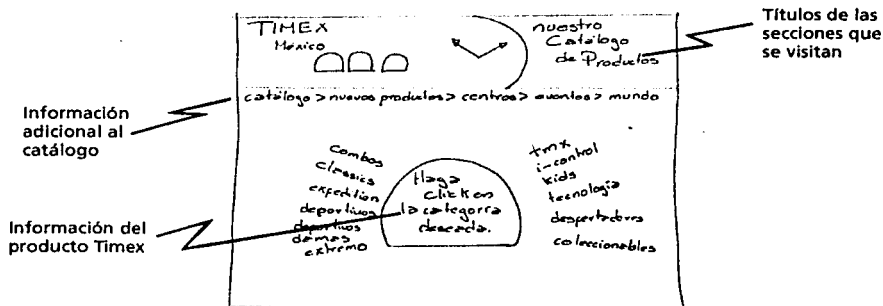 TIMEX
México
nuestro
Catálogo
de Productos
Títulos de las
secciones que
se visitan
catálogo > nuevos productos > centros > eventos > mundo
Información
adicional al
catálogo
combos
classics
expedition
deportivos
deportivos
damas
extremo
Haga
click en
la categoría
deseada.
tmx
i-control
kids
tecnología
despertadores
coleccionables
Información del
producto Timex